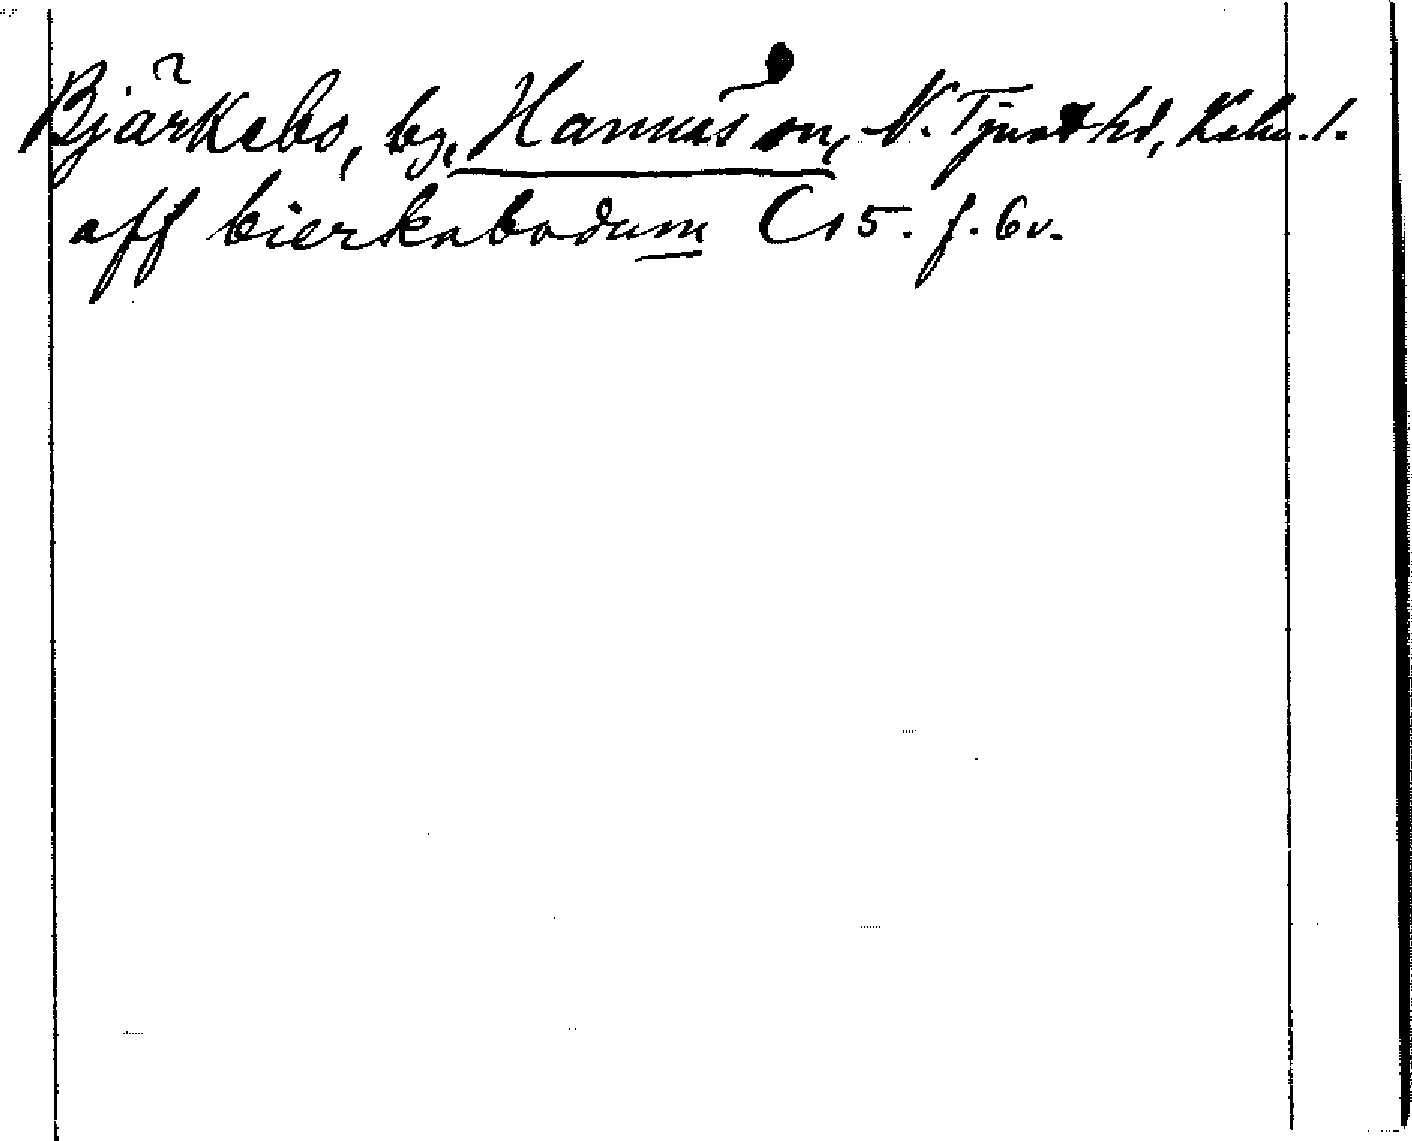 Bjärkebo, by, Hannäs sn, N. Tjust hd, Kalm. l.
aff bierkabodum C 15. f. 6v.